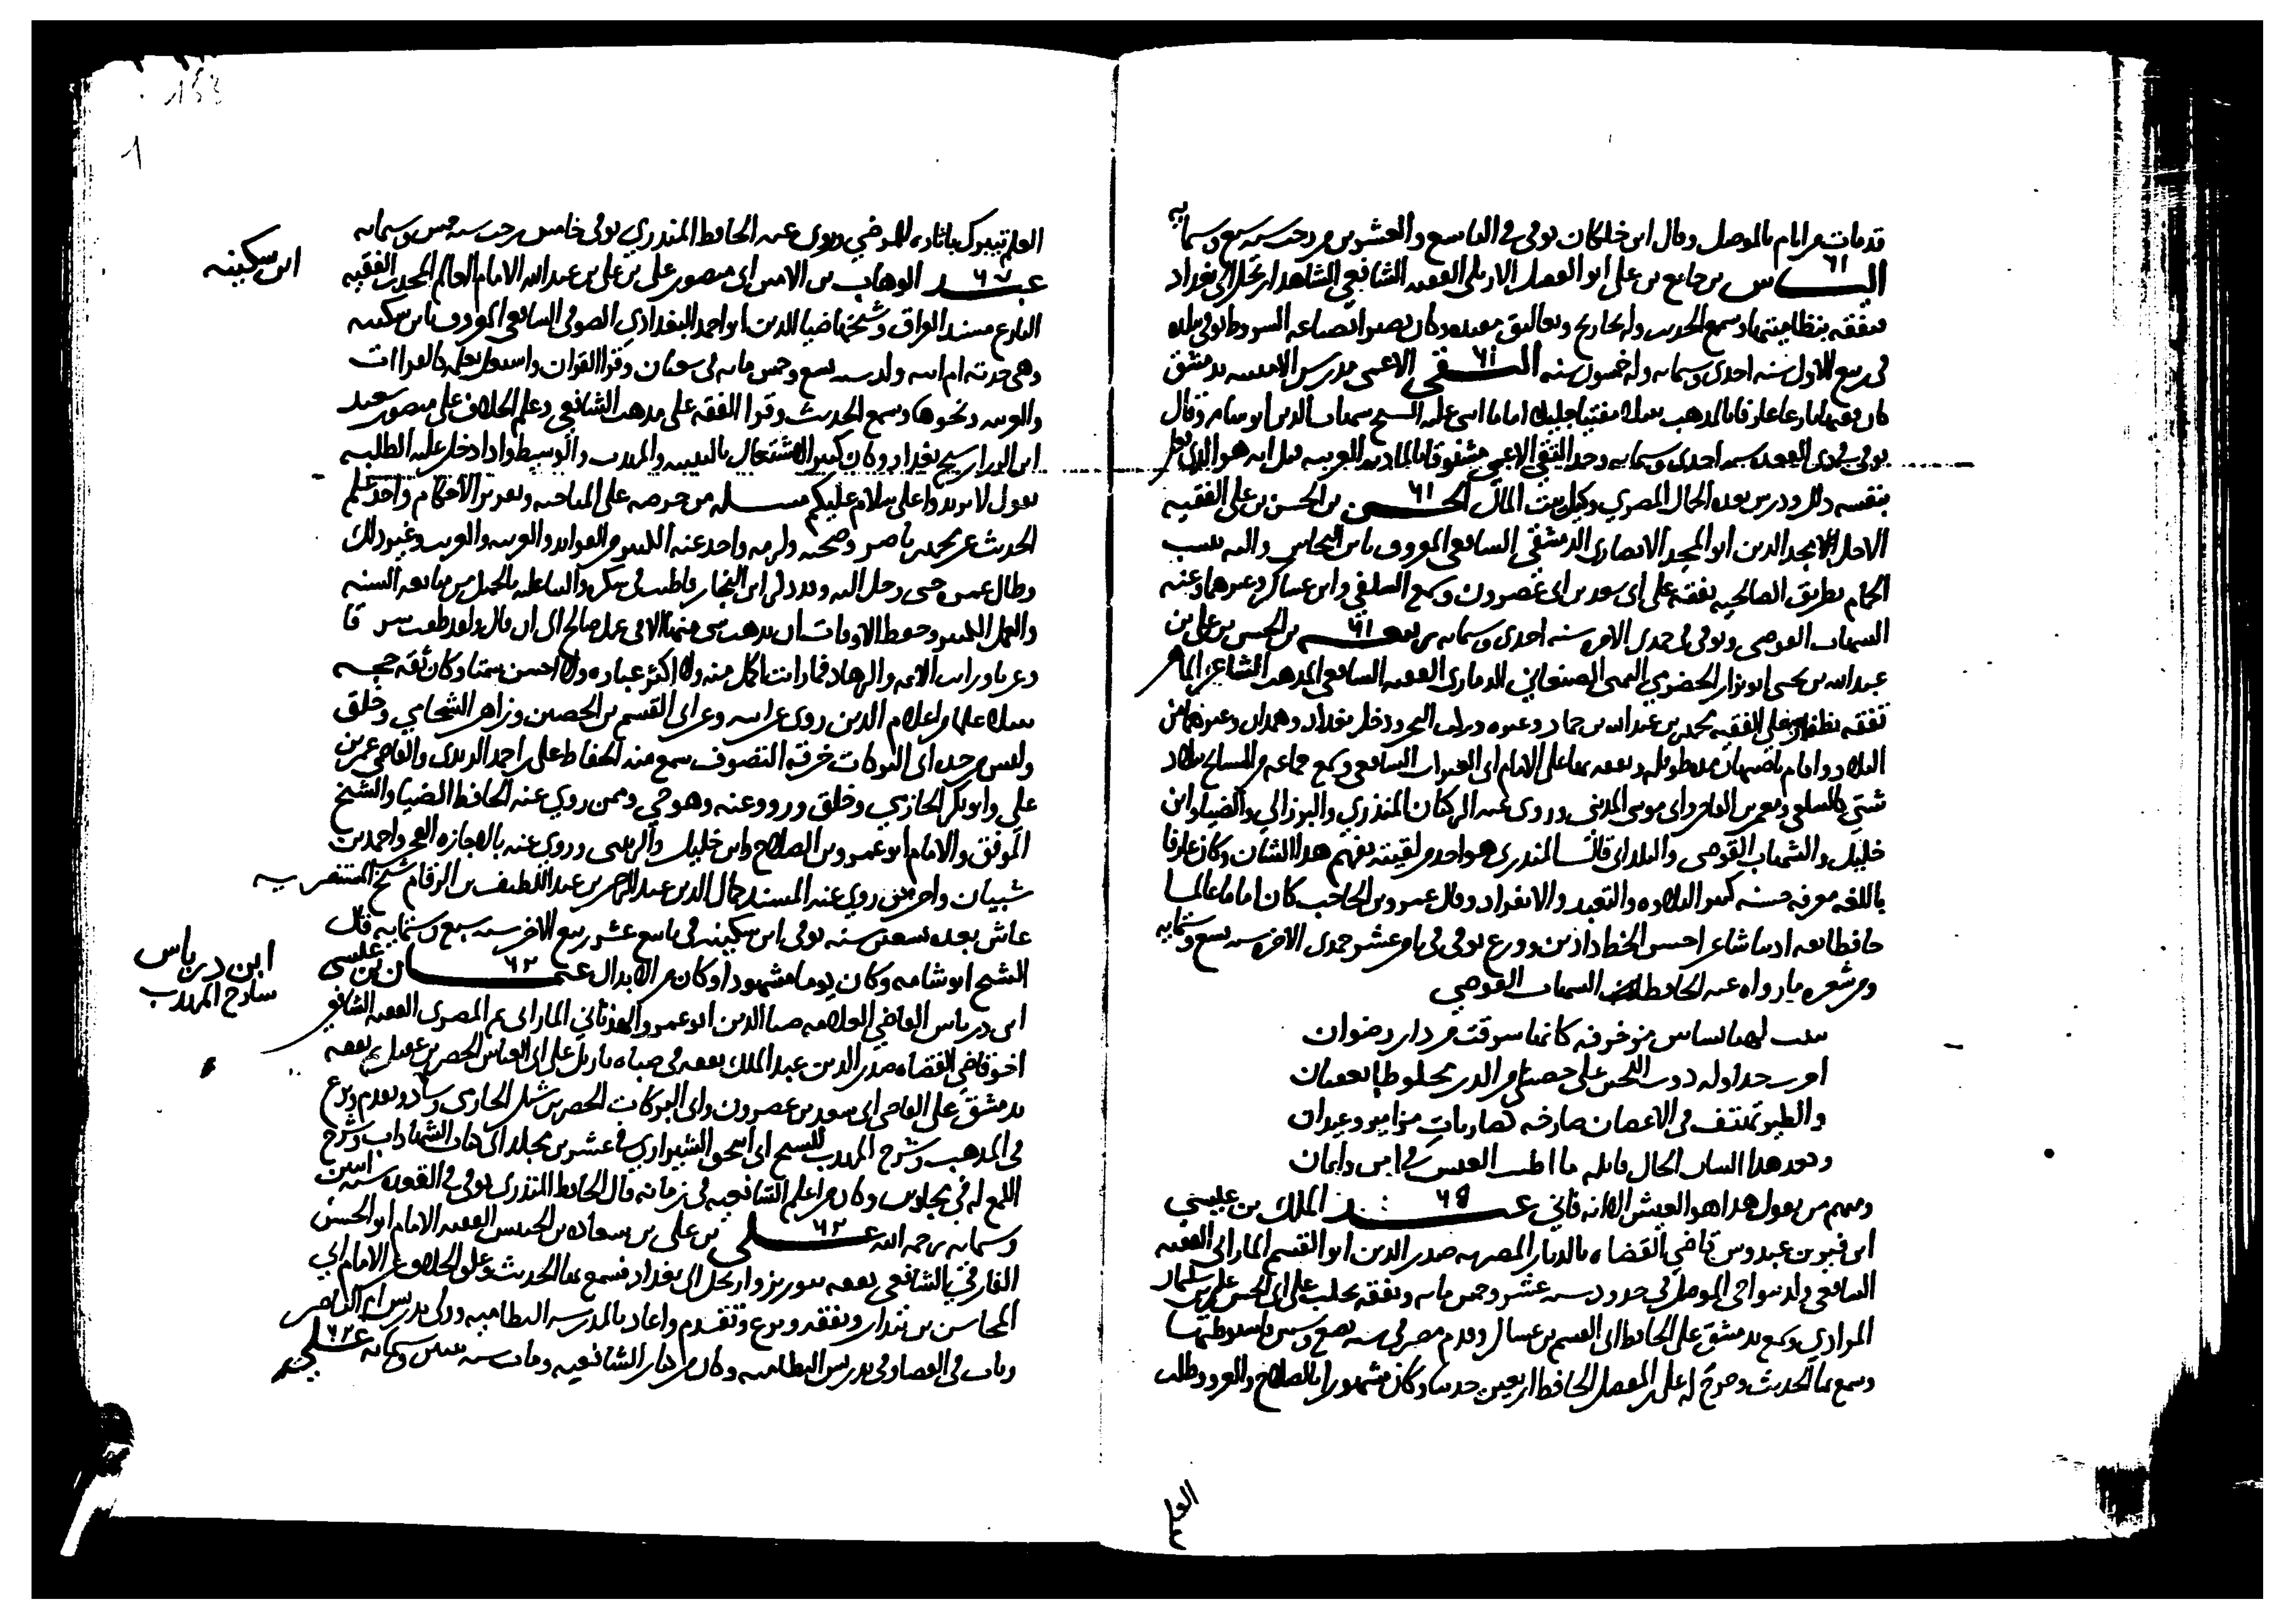 قد مات من ايام بالموصل وقال ابن خلكان توفي في التاسع والعشرين من رجب سنة سبع وستمايه
الياس بن جامع بن علي ابو الفضل الاربلي الفقيه الشافعي الشاهد ارتحل الى بغداد
فتفقه بنظاميتها وسمع الحديث وله تخاريج وتعاليق مفيده وكان بصيرا بصناعه الشروط توفي ببلده
في ربيع الاول سنه احدى وستمايه وله خمسون سنه التقي الاعمى مدرس الامينيه بدمشق
كان فقيها بارعا عارفا بالمذهب مفتيا جليلا اماما اثنى عليه الشيخ شهاب الدين ابو شامه وقال
توفي في ذي القعده سنه احدى وستمايه وجد التقي الاعمى مشنوقا بالماذنه الغربيه قيل انه هو الذي فعل
بنفسه ذلك ودرس بعده الجمال المصري وكيل بيت المال الحسن بن الحسن بن علي الفقيه
الاجل الامجد الدين ابو المجد الانصاري الدمشقي الشافعي المعروف بابن النحاس واليه ينسب
الحمام بطريق الصالحيه تفقه على ابي سعد بن ابي عصرون وسمع السلفي وابن عساكر وغيرهما وعنه
الشهاب القوصي وتوفي في جمدى الاخره سنه احدى وستمايه ربيعه بن الحسن بن علي بن
عبد الله بن يحيى ابو نزار الحضرمي اليمني الصنعاني الذماري الفقيه الشافعي المذهب الشاعر الماهر
تفقه بظفار على الفقيه محمد بن عبد الله بن حماد وغيره وركب البحر ودخل بغداد وهمدان وغيرهما من
البلاد واقام باصبهان مده طويله وتفقه بها على الامام ابي السعادات الشافعي وسمع جماعه من المشايخ ببلاد
شتى كالسلفي ومعمر بن الفاخر وابي موسى المديني وروى عنه الزكيان المنذري والبرزالي والضيا وابن
خليل والشهاب القوصي والبلداني قال المنذري هو احد من لقيته يفهم هذا الشان وكان عارفا
باللغه معرفه حسنه كثير التلاوه والتعبد والانفراد وقال عمر بن الحاجب كان اماما عالما
حافظا ثقه اديبا شاعرا حسن الخط ذا دين وورع توفي في ثامن عشر جمدى الاخره سنه تسع وستمايه
ومن شعره مما رواه عنه الحافظ الشهاب القوصي
لهيا بساتين مزخرفه كانما سرقت من دار رضوان
اجرت جداوله ذوب اللجين على حصبا من الدر مخلوط بالعقيان
والطير تهتف في الاغصان صارخه كضاربات مزامير وعيدان
وبعد هذا لسان الحال قايله ما اطيب العيش في امن وايمان
ومنهم من يقول هذا هو العيش الا انه فاني عبد الملك بن عيسى
ابن فير بن عبدوس قاضي القضاه بالديار المصريه صدر الدين ابو القسم الماراني الفقيه
الشافعي ولد بنواحي الموصل في حدود سنه عشر وخمس مايه وتفقه بحلب على ابي الحسن علي بن سليمان
المرادي وسمع بدمشق على الحافظ ابي القسم بن عساكر وقدم مصر في سنه بضع وستين فاستوطنها
وسمع بها الحديث وخرج له علي بن المفضل الحافظ اربعين حديثا وكان مشهورا بالصلاح والغزو وطلب
العلم
العلم يتبرك باثاره للمرضى وروى عنه الحافظ المنذري توفي خامس رجب سنه خمس وستمايه
عبد الوهاب بن الامين ابي منصور علي بن علي بن عبد الله الامام العالم المحدث الفقيه
البارع مسند العراق وشيخها ضيا الدين ابو احمد البغدادي الصوفي الشافعي المعروف بابن سكينه
وهي جدته ام ابيه ولد سنه تسع وخمس مايه في شعبان وقرا القران واشتغل بعلم القراات
والعربيه ونحوها وسمع الحديث وقرا الفقه على مذهب الشافعي وعلم الخلاف على منصور سعيد
ابن الرزاز شيخ بغداد وكان كثير الاشتغال بالتنبيه والمهذب والوسيط واذا دخل عليه الطلبه
يقول لا تزيدوا على سلام عليكم مسله من حرصه على المباحثه وتقرير الاحكام واخذ علم
الحديث عن محمد بن ناصر وصحبه ولزمه واخذ عنه الكثير من الفوايد والعربيه والغريب وغير ذلك
وطال عمره حتى رحل اليه وقد ذكره ابن النجار فاطنب في شكره والثنا عليه بالجميل من متابعه السنه
والعمل الكثير وحفظ الاوقات ان يذهب شي منها الا في عمل صالح الى ان قال ولقد طفت شرقا
وغربا ورايت الايمه والزهاد فما رايت اكمل منه ولا اكثر عباده ولا احسن سمتا وكان ثقه حجه
نبيلا علما من اعلام الدين روى عن ابيه وعن ابي القسم بن الحصين وزاهر الشحامي وخلق
ولبس من جده ابي البركات خرقه التصوف سمع منه الحفاظ علي بن احمد الزيدي والقاضي عمر بن
علي وابو بكر الحازمي وخلق ورووا عنه وهو حي وممن روى عنه الحافظ الضيا والشيخ
الموفق والامام ابو عمرو بن الصلاح وابن خليل والدبيثي وروى عنه بالاجازه الفخر واحمد بن
شيبان واخر من روى عنه المسند كمال الدين عبد الرحمن بن عبد اللطيف بن الرقام شيخ المستنصريه
عاش بعده تسعين سنه توفي ابن سكينه في تاسع عشر ربيع الاخر سنه سبع وستمايه قال
الشيخ ابو شامه وكان يوما مشهودا وكان من الابدال عثمان بن عيسى
ابن درباس القاضي العلامه ضيا الدين ابو عمرو الهذباني الماراني ثم المصري الفقيه الشافعي
اخو قاضي القضاه صدر الدين عبد الملك تفقه في صباه باربل على ابي العباس الخضر بن عقيل ثم تفقه
بدمشق على القاضي ابي سعد بن عصرون وابي البركات الخضر بن شبل الحارثي وساد وتقدم وبرع
في المذهب وشرح المهذب للشيخ ابي اسحق الشيرازي في عشرين مجلدا الى كتاب الشهادات وشرح
اللمع له في مجلدين وكان من اعلم الشافعيه في زمانه قال الحافظ المنذري توفي في القعده سنه اثنين
وستمايه رحمه الله علي بن علي بن سعاده بن الجنيس الفقيه الامام ابو الحسن
الفارقي الشافعي تفقه بتبريز وارتحل الى بغداد فسمع بها الحديث وعلق الخلاف عن الامام ابي
المحاسن بن بندار وتفقه وبرع وتقدم واعاد بالمدرسه النظاميه وولي تدريس ام الناصر
وناب في القضا وفي تدريس النظاميه وكان من كبار الشافعيه ومات سنه ستين وستمايه علي بن
ابن سكينه
ابن درباس
شارح المهذب